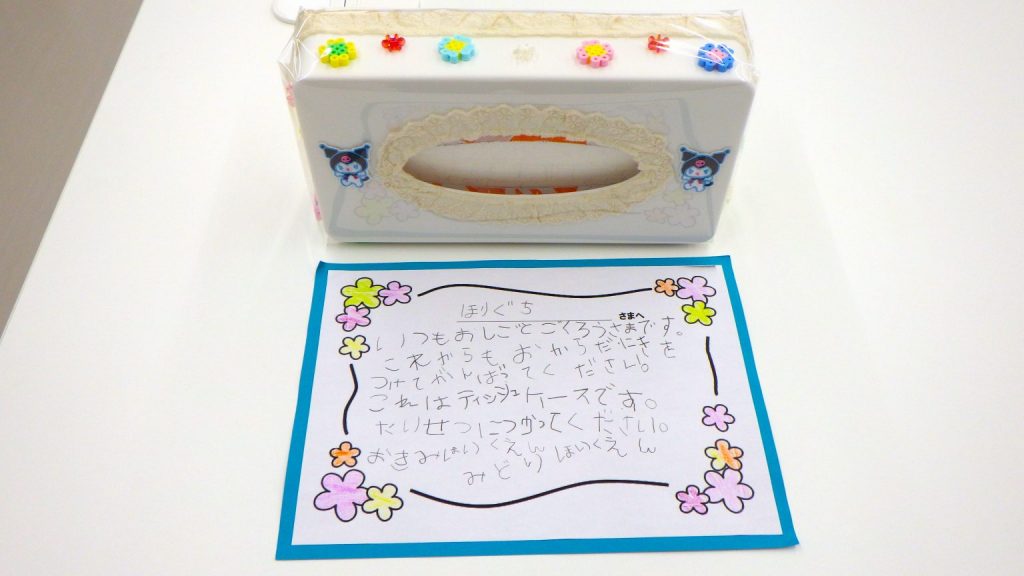 ほりぐち さまへ
いつもおしごとごくろうさまです。
これからもおからだにきを
つけてがんばってください。
これはティッシュケースです。
たいせつにつかってください。
おきみほいくえん
みどりほいくえん